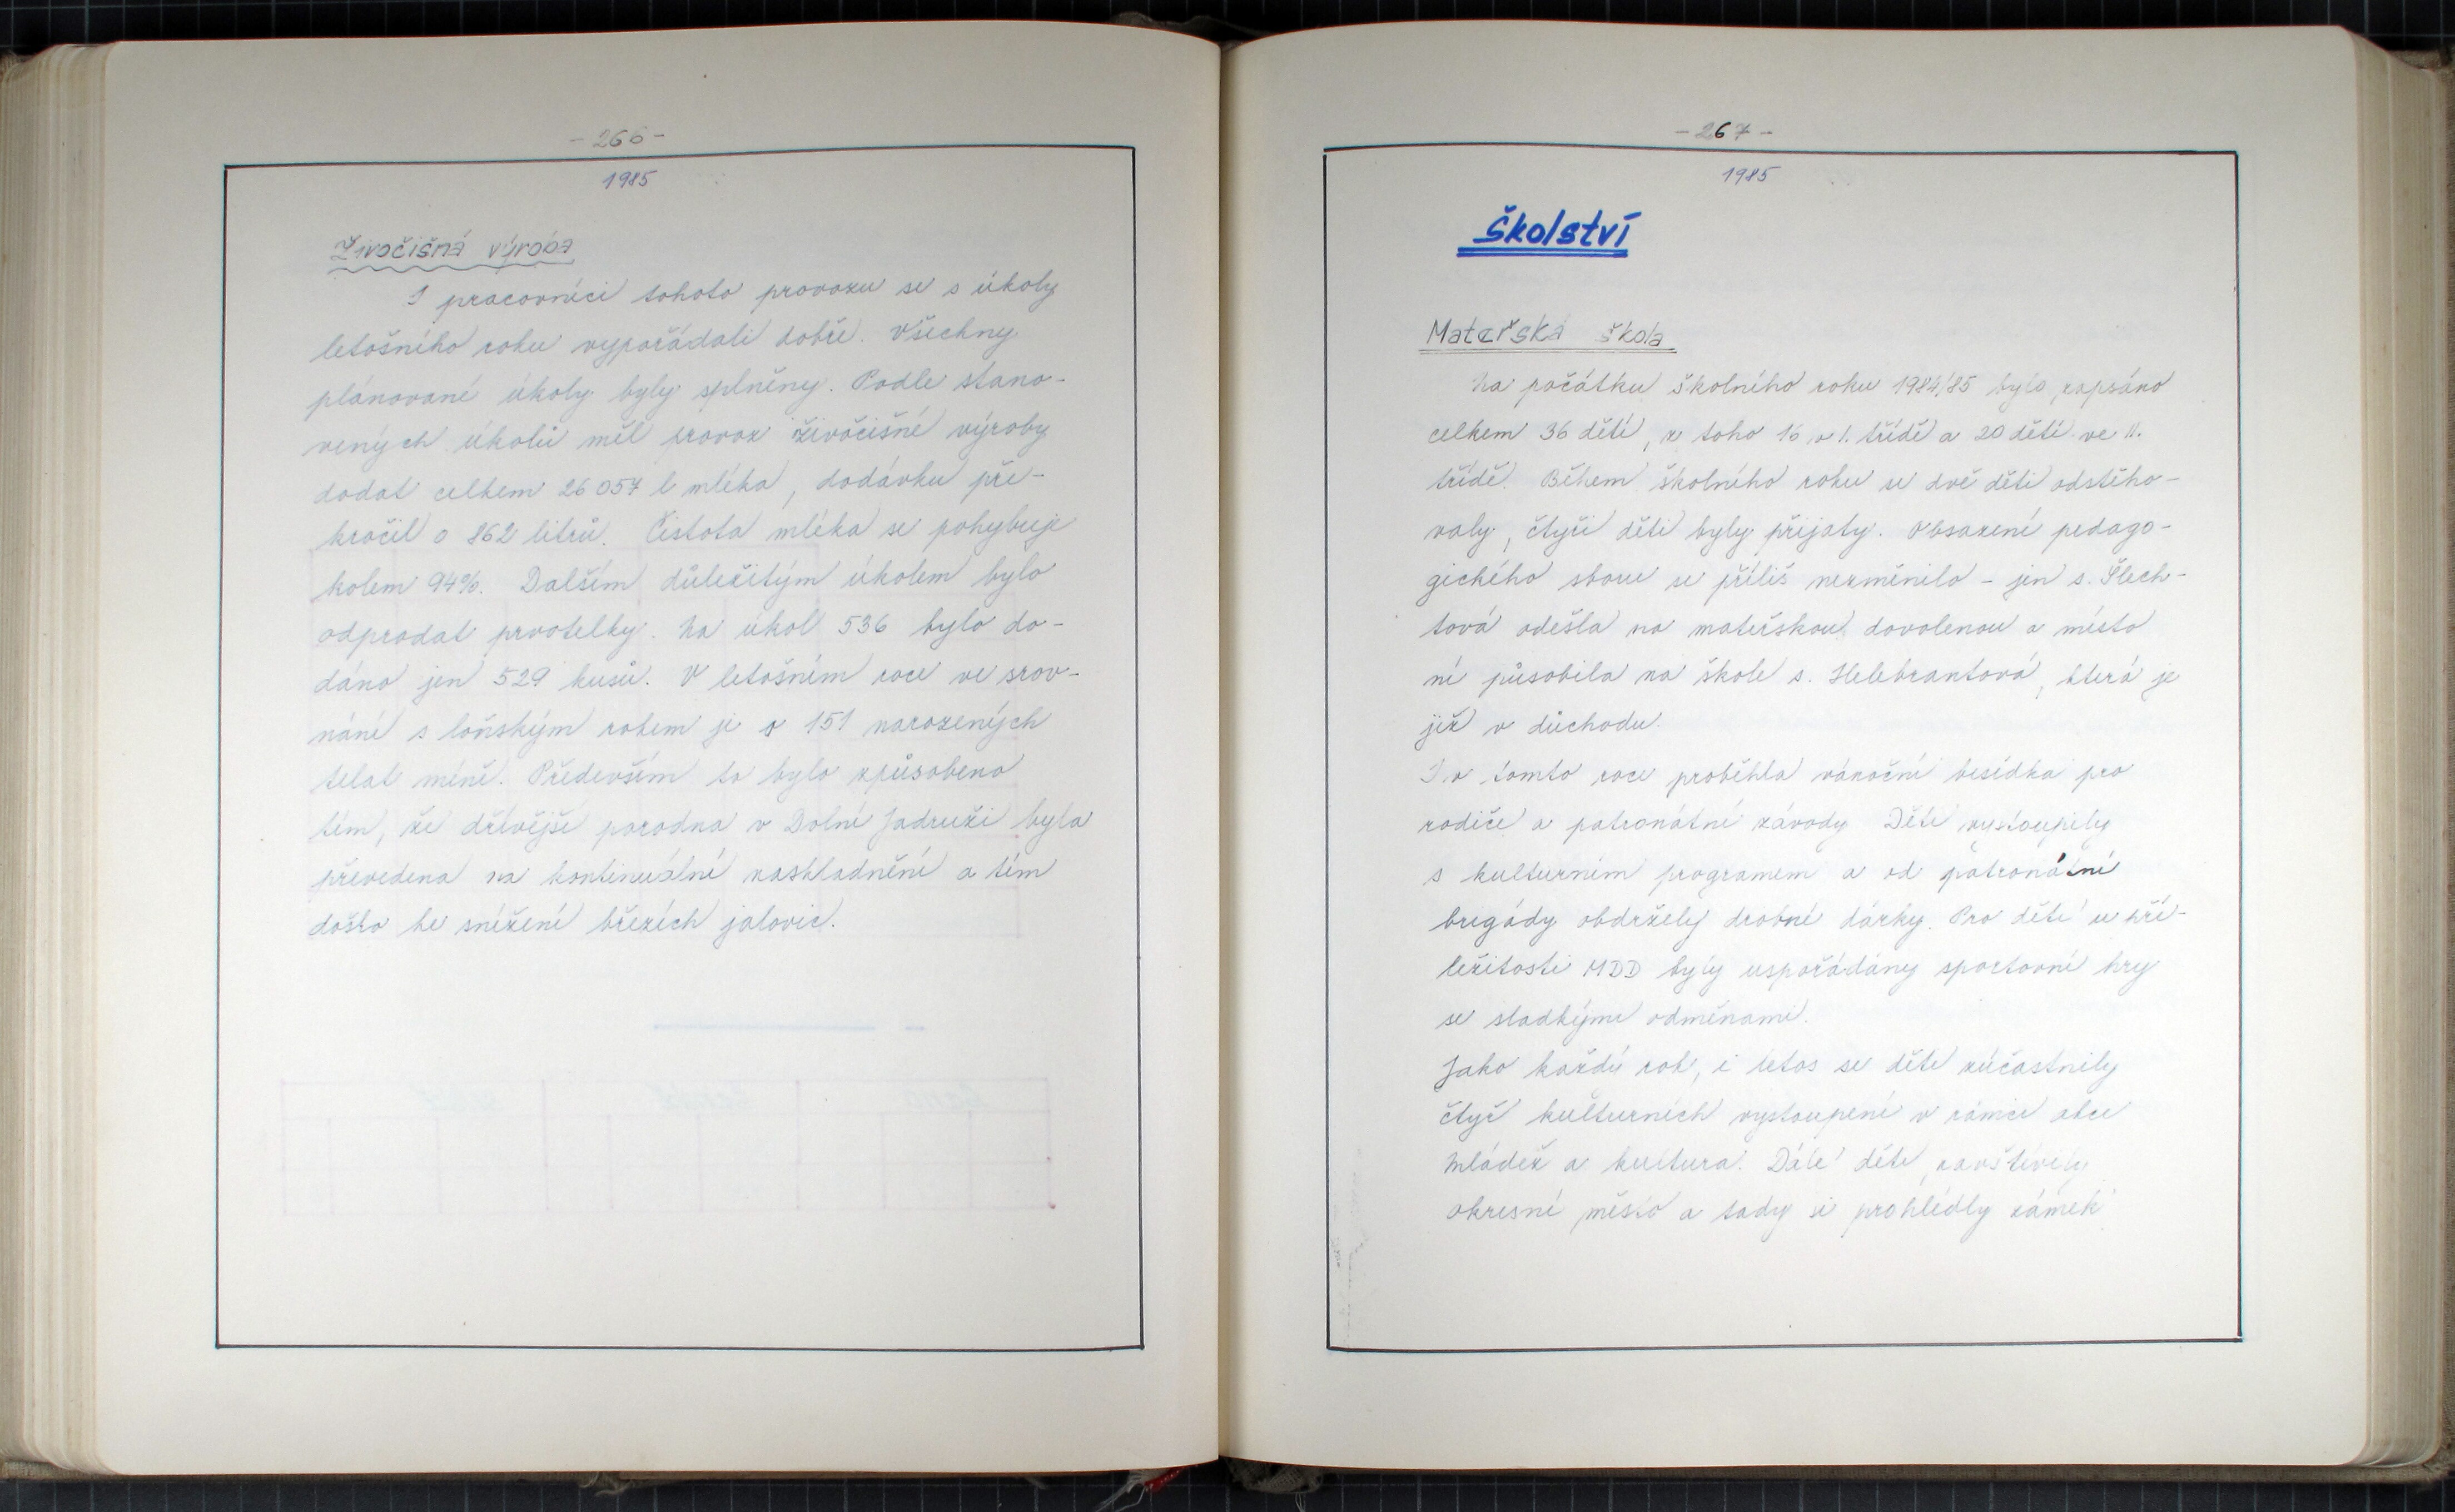 - 266 -
1985
Živočišná výroba
I pracovníci tohoto provozu se s úkoly
letošního roku vypořádali dobře. Všechny
plánované úkoly byly splněny. Podle stano-
vených úkolů měl provoz živočišné výroby
dodat celkem 26 057 l mléka, dodávku pře-
kročil o 862 litrů. Čistota mléka se pohybuje
kolem 94%. Dalším důležitým úkolem bylo
odprodat prvotelky. Na úkol 536 bylo do-
dáno jen 529 kusů. V letošním roce ve srov-
nání s loňským rokem je o 151 narozených
telat méně. Především to bylo způsobeno
tím, že dřívější porodna v Dolní Jadruži byla
převedena na kontinuální naskladnění a tím
došlo ke snížení březích jalovic.
- 267 -
1985
Školství
Mateřská škola
Na počátku školního roku 1984/85 bylo zapsáno
celkem 36 dětí, z toho 16 v I. třídě a 20 dětí ve II.
třídě. Během školního roku se dvě děti odstěho-
valy, čtyři děti byly přijaty. Obsazení pedago-
gického sboru se příliš nezměnilo - jen s. Šlech-
tová odešla na mateřskou dovolenou a místo
ní působila na škole s. Helebrantová, která je
již v důchodu.
I v tomto roce proběhla vánoční besídka pro
rodiče a patronátní závody Děti vystoupily
s kulturním programem a od patronátní
brigády obdržely drobné dárky. Pro děti u pří-
ležitosti MDD byly uspořádány sportovní hry
se sladkými odměnami.
Jako každý rok, i letos se děti zúčastnily
čtyř kulturních vystoupení v rámci akce
Mládež a kultura. Dále děti navštívily
okresní město a tady si prohlédly zámek